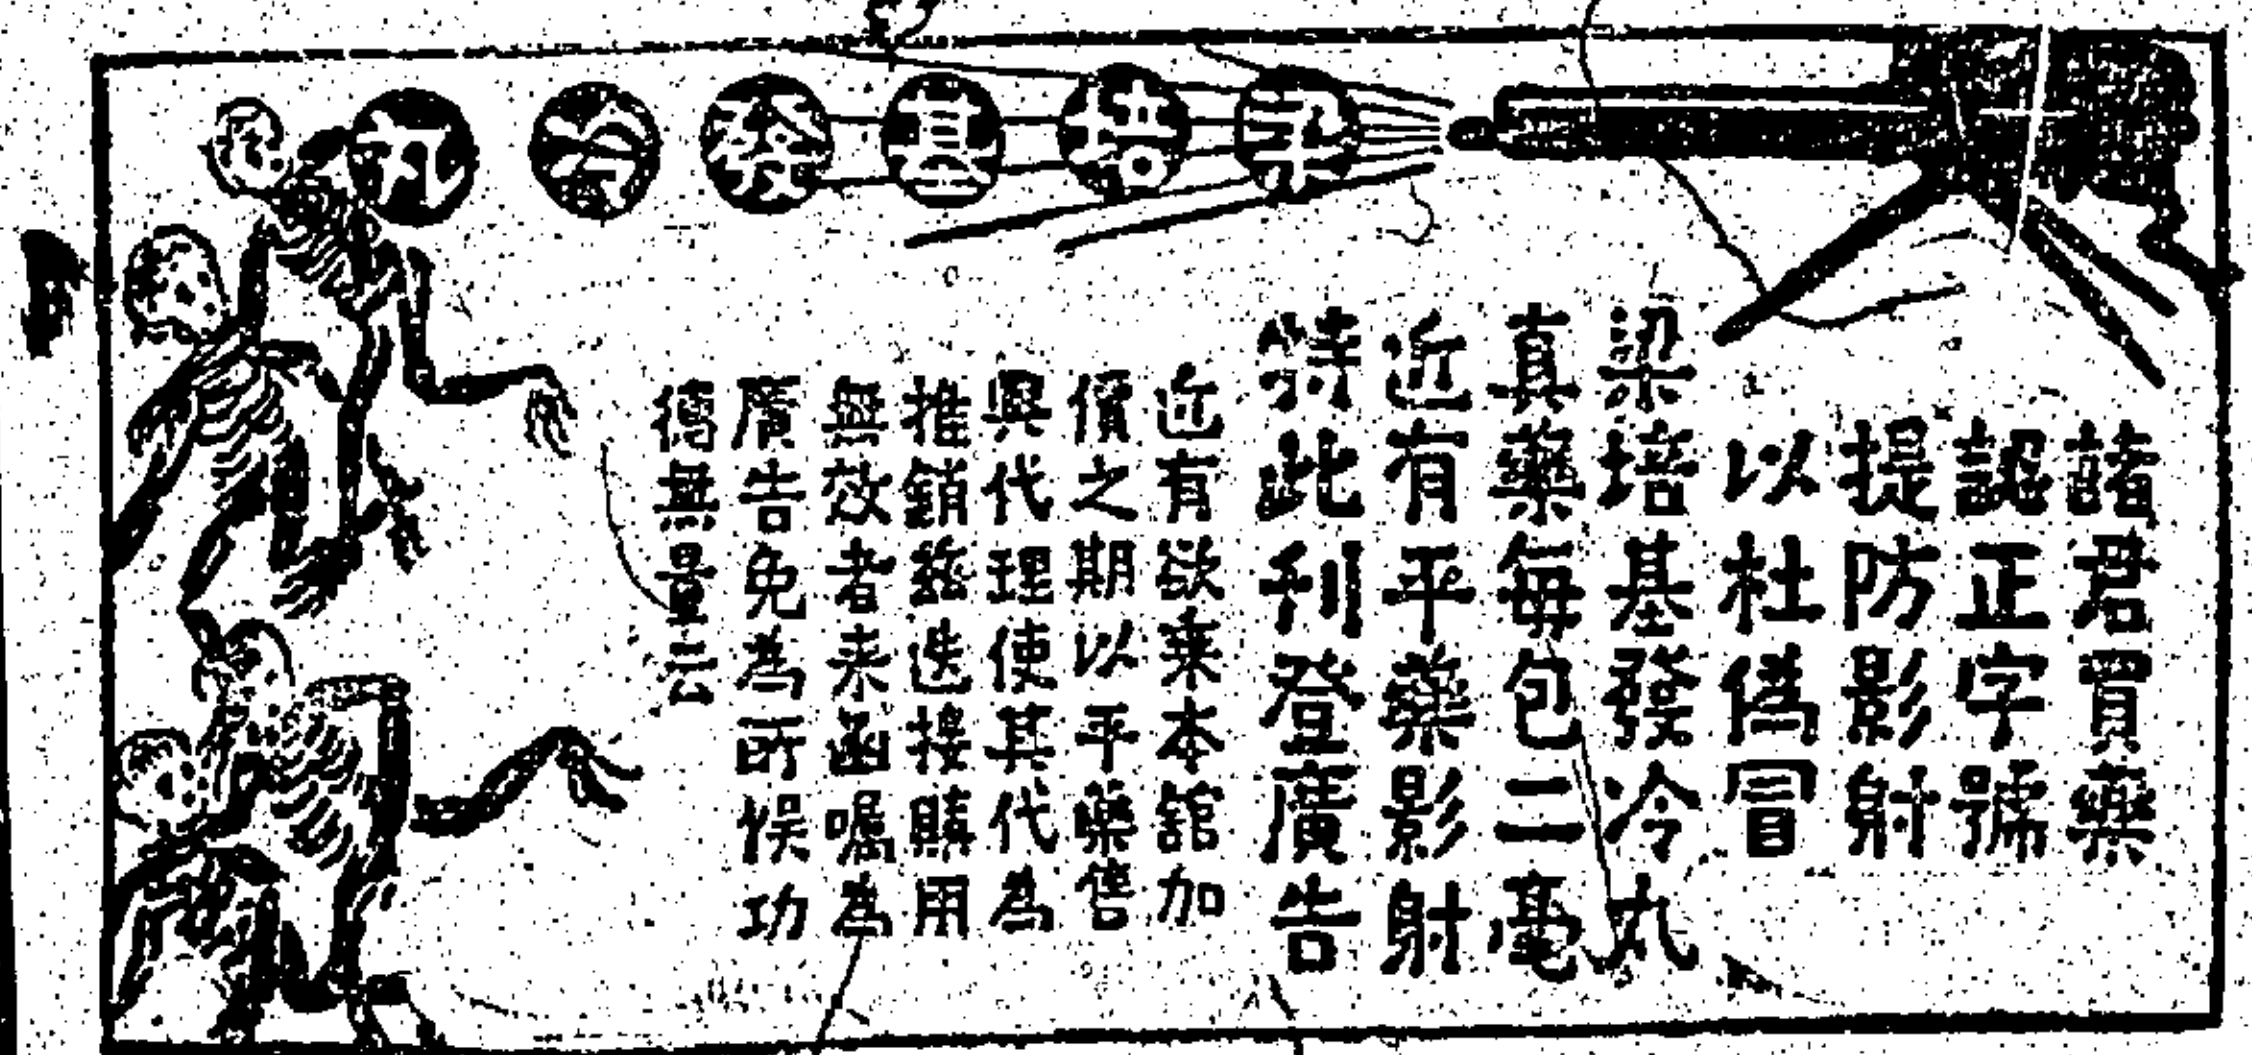 梁培基發冷丸
諸君買藥
認正字號
提防影射
以杜偽冒
梁培基發冷丸
真藥每包二毫
近有平藥影射
特此刋登廣告
近有欲乘本舘加
價之期以平藥售
與代理使其代為
推銷茲迭接購用
無效者來函囑為
廣告免為所悞功
德無量云